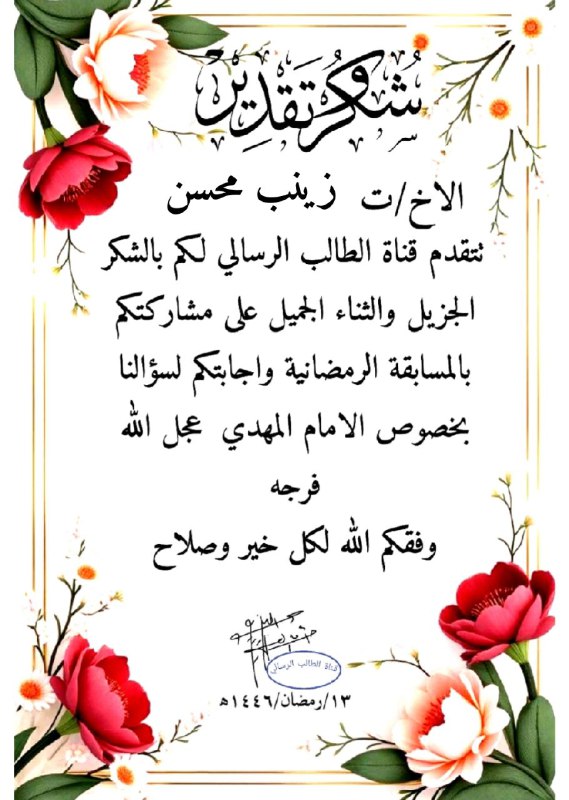 شكر وتقدير
الاخ/ت زينب محسن
تتقدم قناة الطالب الرسالي لكم بالشكر
الجزيل والثناء الجميل على مشاركتكم
بالمسابقة الرمضانية واجابتكم لسؤالنا
بخصوص الامام المهدي عجل الله
فرجه
وفقكم الله لكل خير وصلاح
قناة الطالب الرسالي
١٣/رمضان/١٤٤٦ه